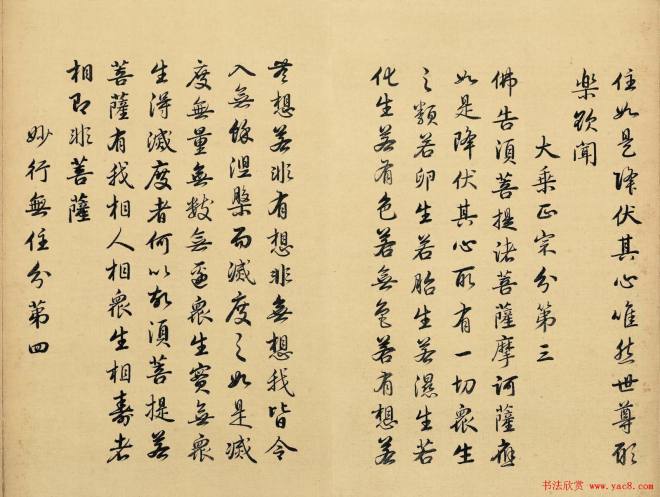 住如是降伏其心唯然世尊願
樂欲聞
大乘正宗分第三
佛告須菩提諸菩薩摩訶薩應
如是降伏其心所有一切眾生
之類若卵生若胎生若濕生若
化生若有色若無色若有想若
無想若非有想非無想我皆令
入無餘涅槃而滅度之如是滅
度無量無數無邊眾生實無眾
生得滅度者何以故須菩提若
菩薩有我相人相眾生相壽者
相即非菩薩
妙行無住分第四
书法欣赏 www.yac8.com